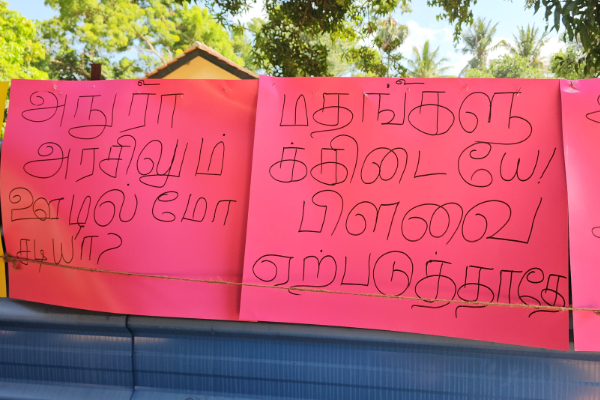 அநுரா
அரசிலும்
ஊழல் மோ
சடியா?
மதங்களு
க்கிடையே!
பிளவை
ஏற்படுத்தாதே